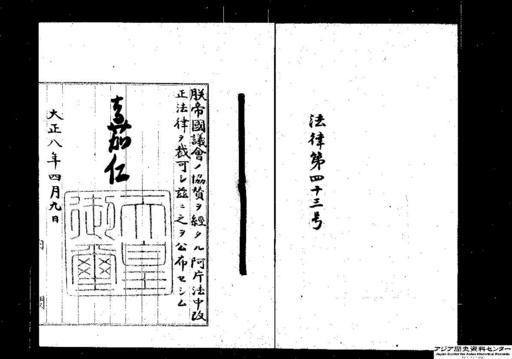 法律第四十三号
朕帝國議會ノ協賛ヲ經タル阿片法中改
正法律ヲ裁可シ茲ニ之ヲ公布セシム
嘉仁
天皇
御璽
大正八年四月九日
内閣
アジア歴史資料センター
Japan Center for Asian Historical Records